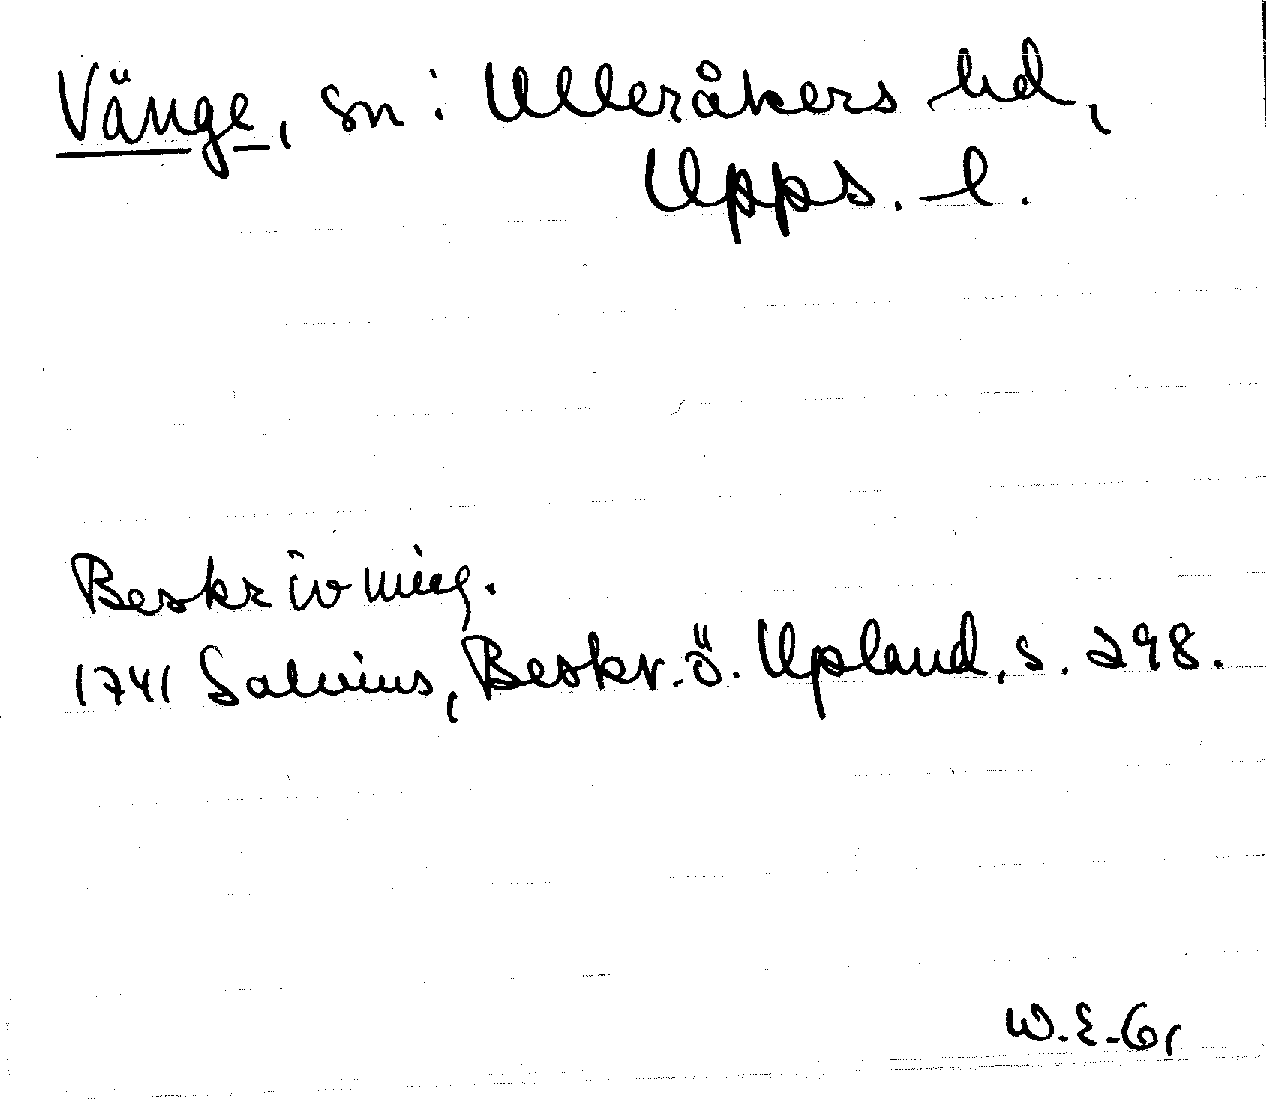 Vänge, sn: Ulleråkers hd,
Upps. l.
Beskrivning.
1741 Salvius, Beskr. ö. Upland, s. 298.
W. E-Gr